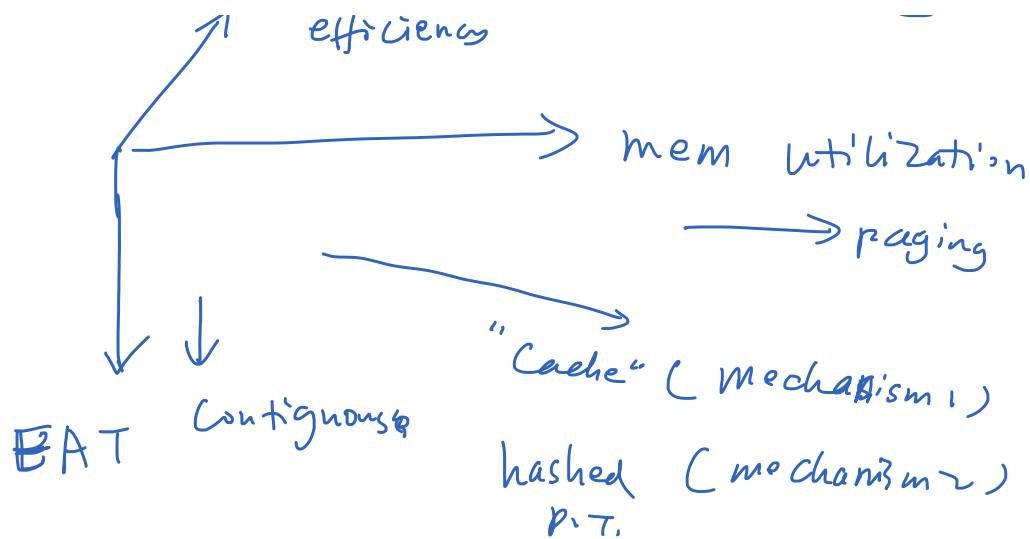 efficiency
mem utilization
paging
"Cache" (mechanism 1)
EAT
Contiguous
hashed (mechanism 2)
P.T.